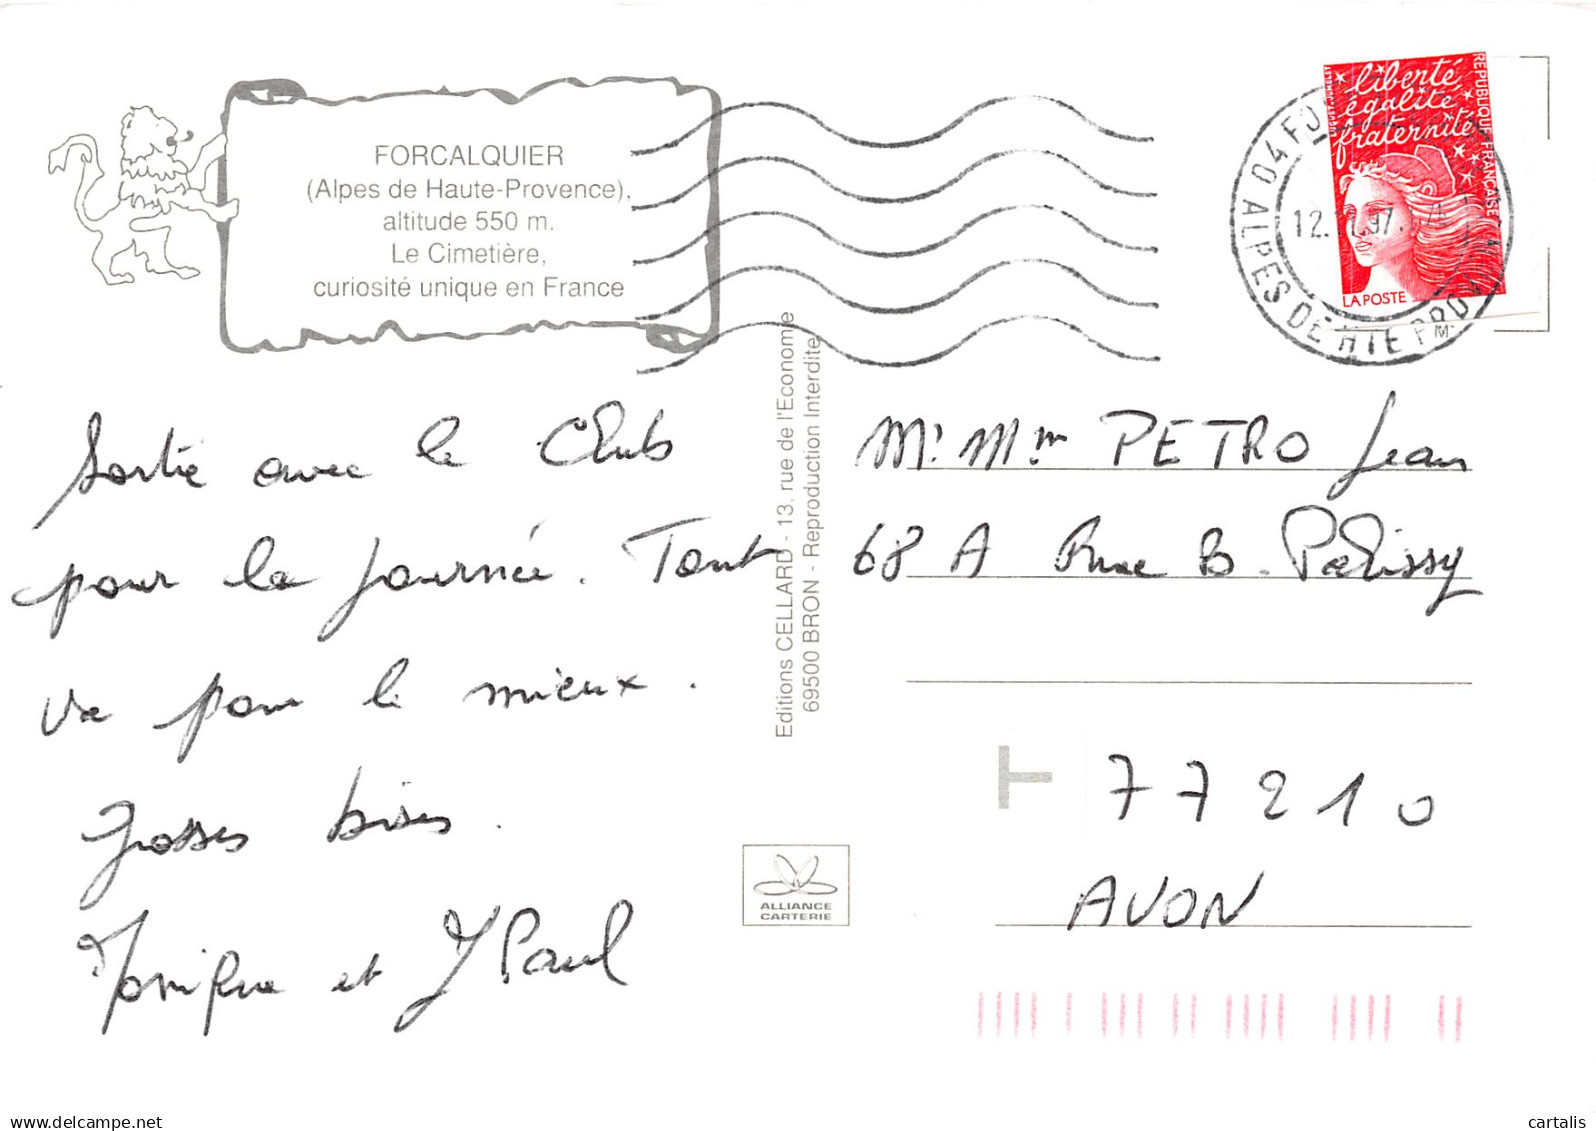 FORCALQUIER
(Alpes de Haute-Provence),
altitude 550 m.
Le Cimetière,
curiosité unique en France
Sortie avec le Club
pour la journée. Tout
va pour le mieux.
Grosses bises.
Monique et J Paul
Editions CELLARD - 13, rue de l'Economie
69500 BRON - Reproduction Interdite
ALLIANCE
CARTERIE
liberté
égalité
fraternité
REPUBLIQUE FRANÇAISE
LA POSTE
04 FO
ALPES DE HTE PROV
12. 97.
M. Mm PETRO Jean
68 A Rue B. Palissy
T
77210
AVON
delcampe.net
cartalis